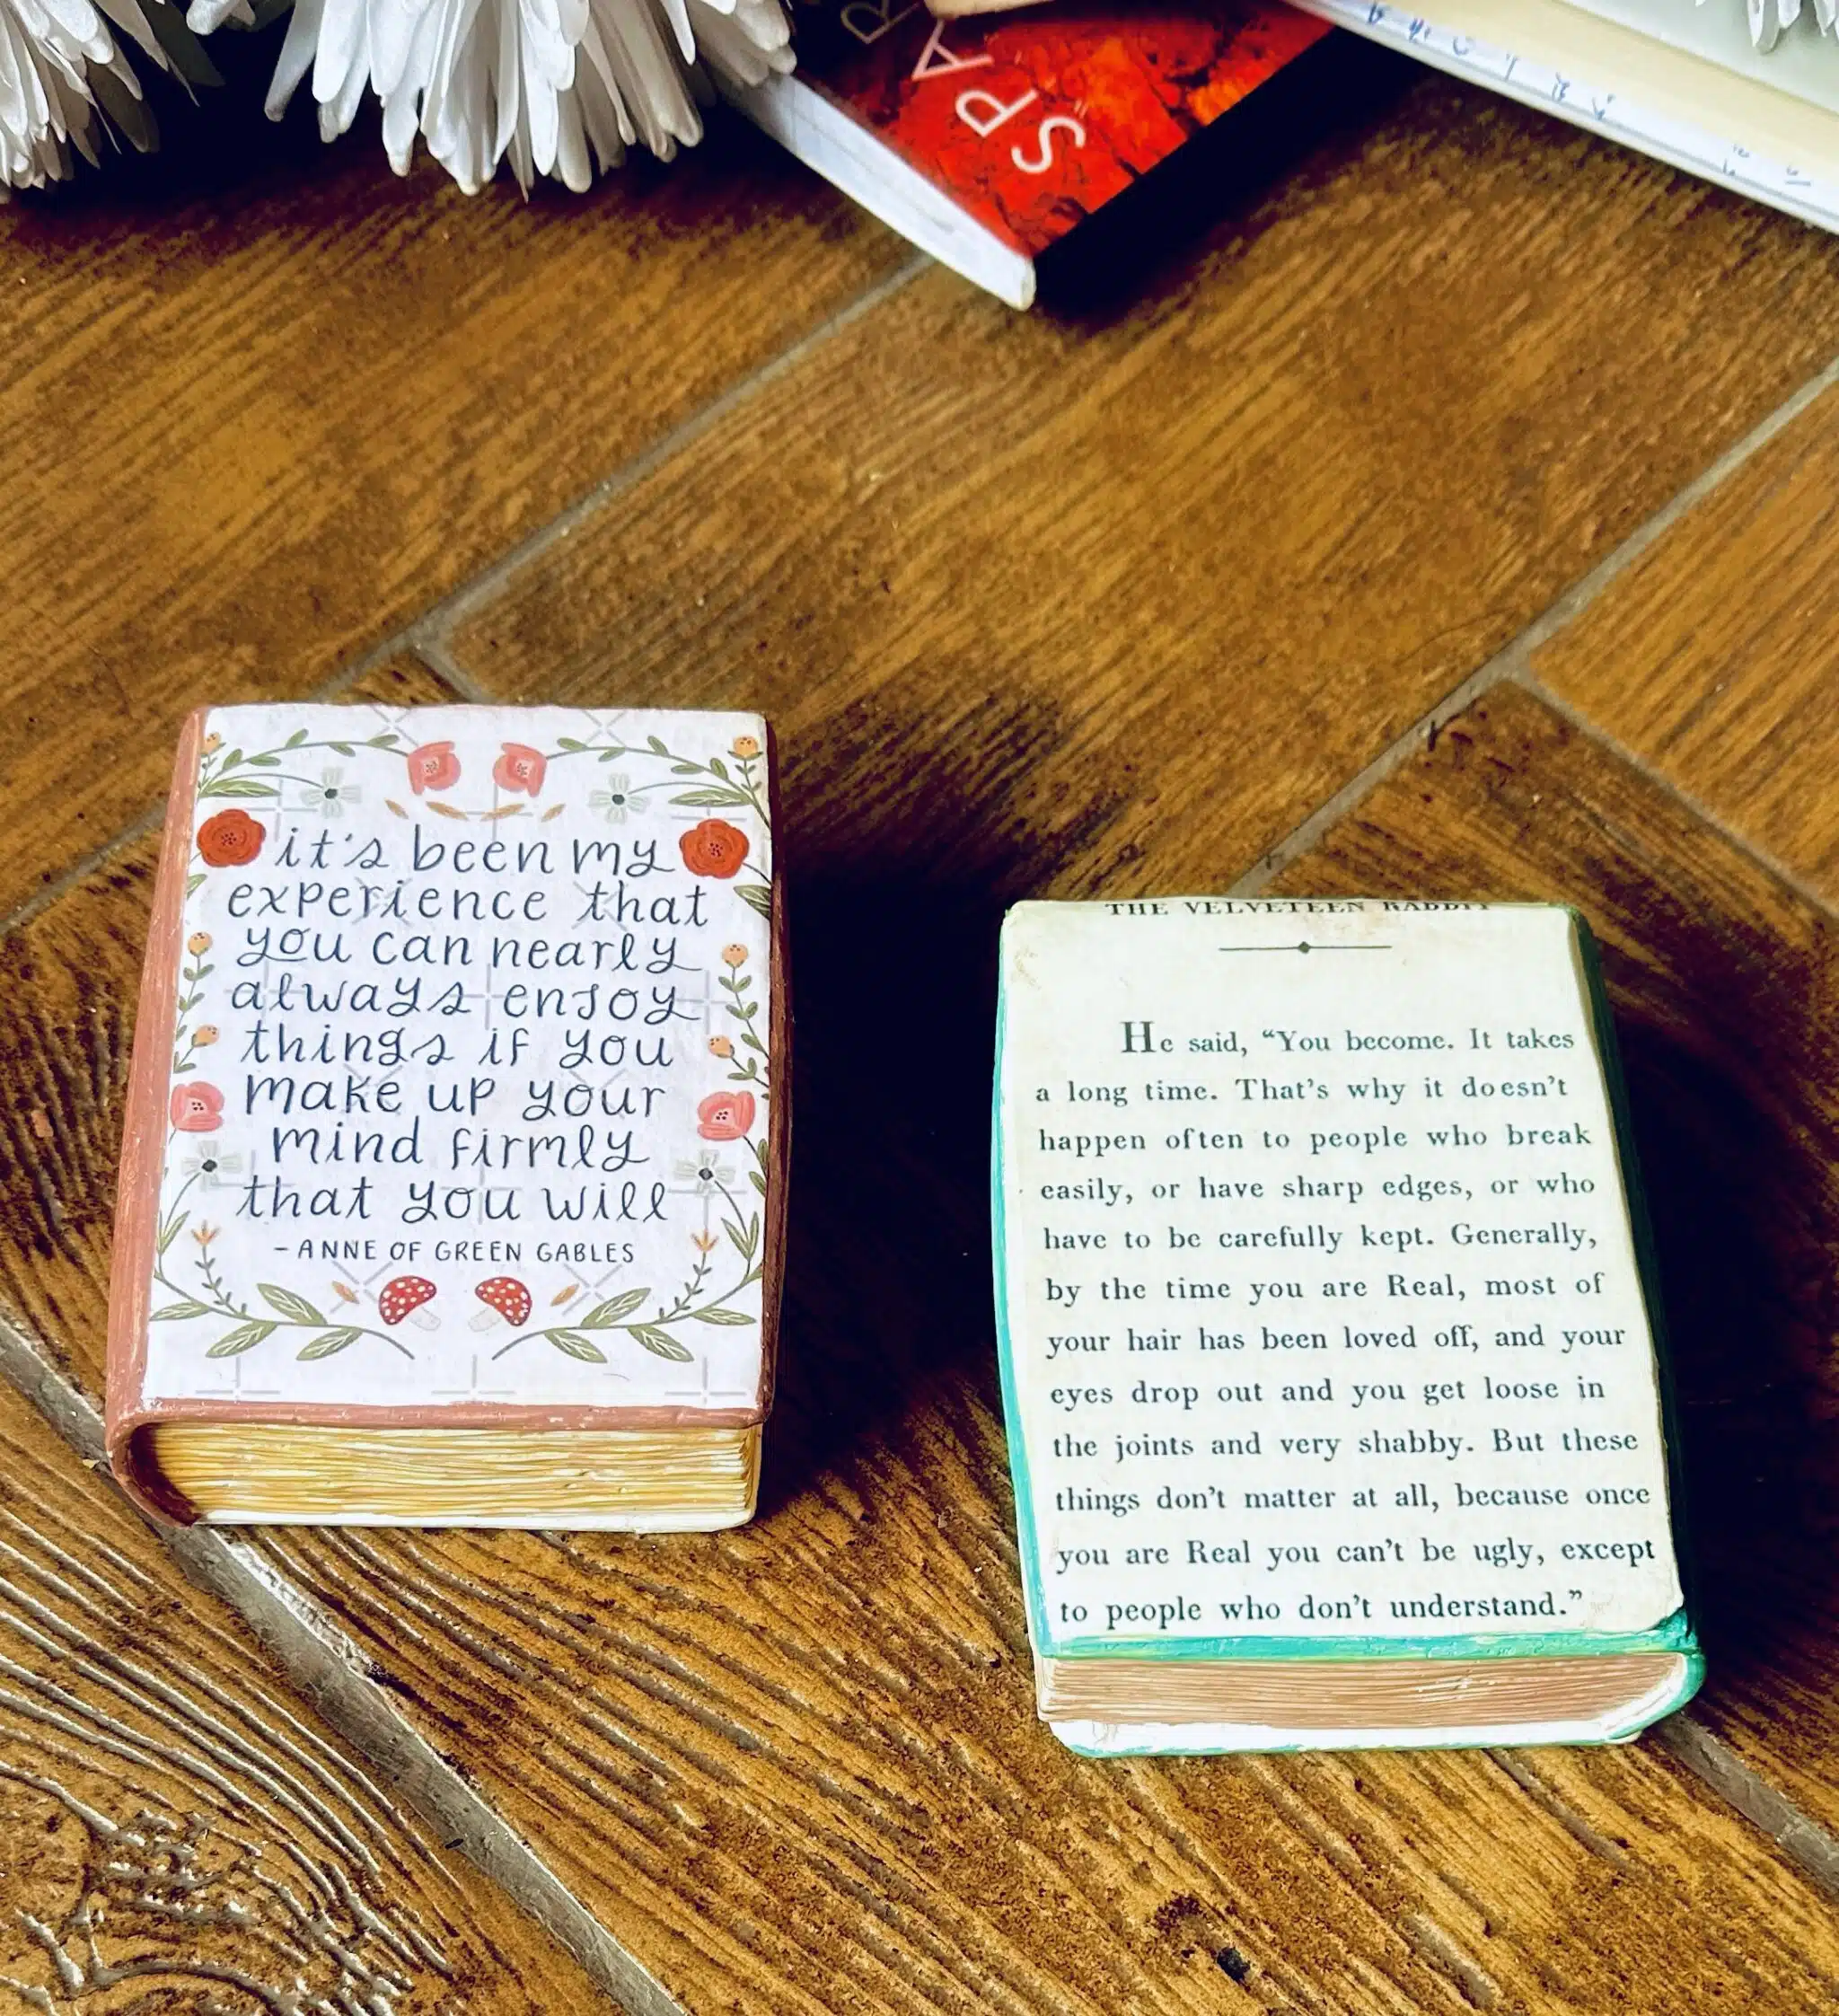 SPA
it's been my
experience that
you can nearly
always enjoy
things if you
make up your
mind firmly
that you will
- ANNE OF GREEN GABLES
THE VELVETEEN RABBIT
He said, “You become. It takes
a long time. That’s why it doesn’t
happen often to people who break
easily, or have sharp edges, or who
have to be carefully kept. Generally,
by the time you are Real, most of
your hair has been loved off, and your
eyes drop out and you get loose in
the joints and very shabby. But these
things don’t matter at all, because once
you are Real you can’t be ugly, except
to people who don’t understand.”